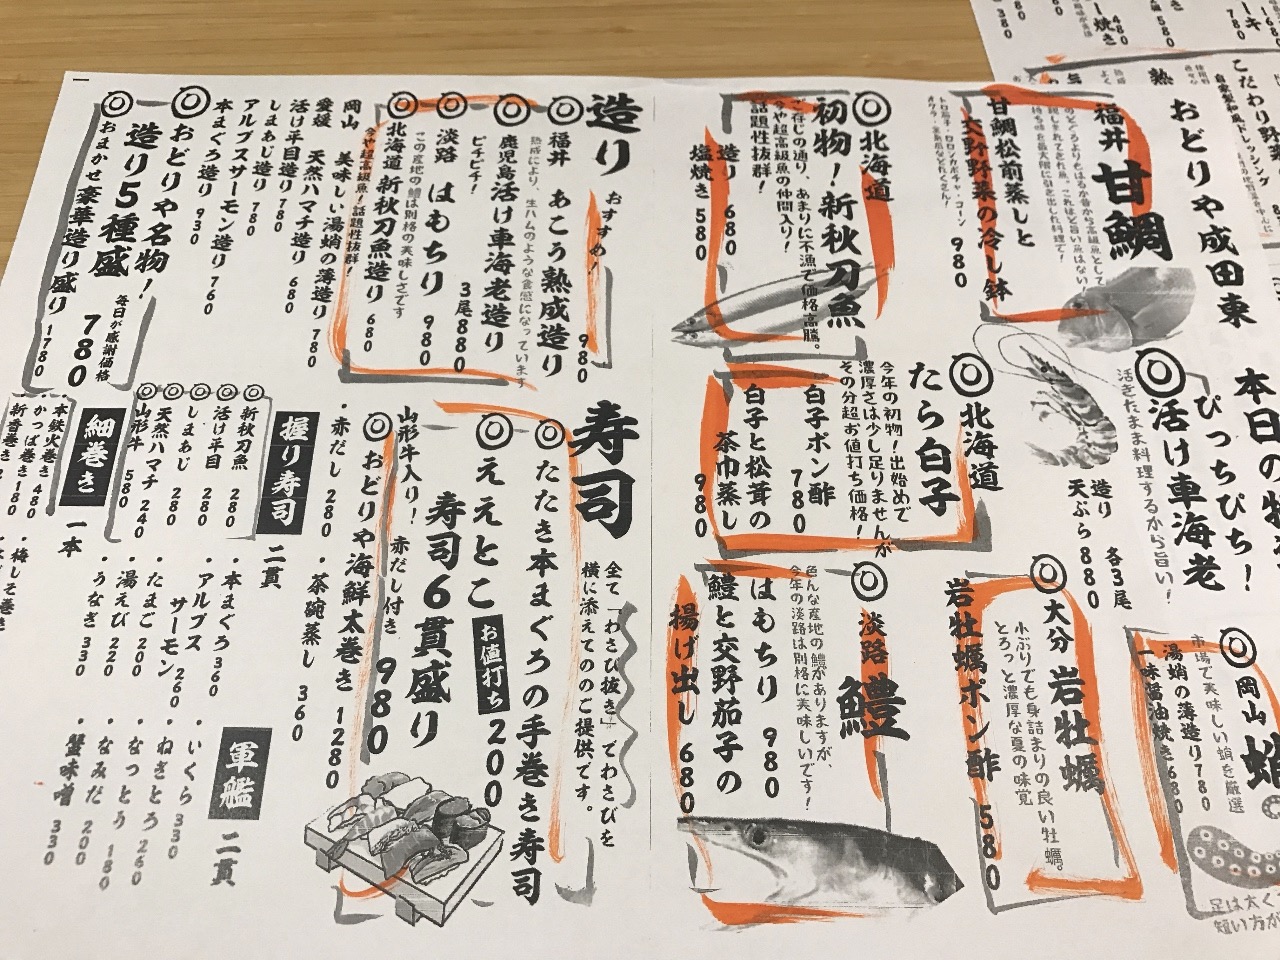 おどりや成田東
本日の
ぴっちぴち！
活け車海老
活きたまま料理するから旨い！
造り
天ぷら
各3尾
880
岡山
市場で美味しい蛸を厳選
湯蛸の薄造り780
一味醤油焼き680
福井 甘鯛
甘鯛松前蒸しと
交野野菜の冷し鉢
980
北海道
初物！新秋刀魚
ご存じの通り、あまりに不漁で価格高騰。
今や超高級魚の仲間入り！
話題性抜群！
造り 680
塩焼き 580
北海道
たら白子
今年の初物！出始めで
濃厚さは少し足りませんが
その分超お値打ち価格！
白子ポン酢 780
白子と松茸の
茶巾蒸し 980
大分 岩牡蠣
小ぶりでも身詰まりの良い牡蠣。
とろっと濃厚な夏の味覚
岩牡蠣ポン酢 580
淡路 鱧
色んな産地の鱧がありますが、
今年の淡路は別格に美味しいです！
はもちり 980
鱧と交野茄子の
揚げ出し 680
造り おすすめ！
福井 あこう熟成造り 980
熟成により、生ハムのような食感になっています
鹿児島活け車海老造り
ピチピチ！ 3尾880
淡路 はもちり 980
この産地の鱧は別格の美味しさです
北海道 新秋刀魚造り 680
今や超高級魚！話題性抜群！
岡山 美味しい湯蛸の薄造り 780
愛媛 天然ハマチ造り 680
活け平目造り 780
しまあじ造り 780
アルプスサーモン造り 760
本まぐろ造り 930
おどりや名物！
造り5種盛 毎日が感謝価格 780
おまかせ豪華造り盛り 1780
寿司
全て「わさび抜き」でわさびを
横に添えてのご提供です。
たたき本まぐろの手巻き寿司
お値打ち 200
ええとこ
寿司6貫盛り 980
山形牛入り！ 赤だし付き
おどりや海鮮太巻き 1280
・赤だし 280 ・茶碗蒸し 360
握り寿司 二貫
新秋刀魚 280
活け平目 280
しまあじ 280
天然ハマチ 240
山形牛 580
・本まぐろ 360
・アルプスサーモン 260
・たまご 200
・湯えび 220
・うなぎ 330
軍艦 二貫
・いくら 330
・ねぎとろ 260
・なっとう 180
・なみだ 200
・蟹味噌 330
細巻き 一本
本鉄火巻き 480
かっぱ巻き 180
新香巻き
・梅しそ巻き